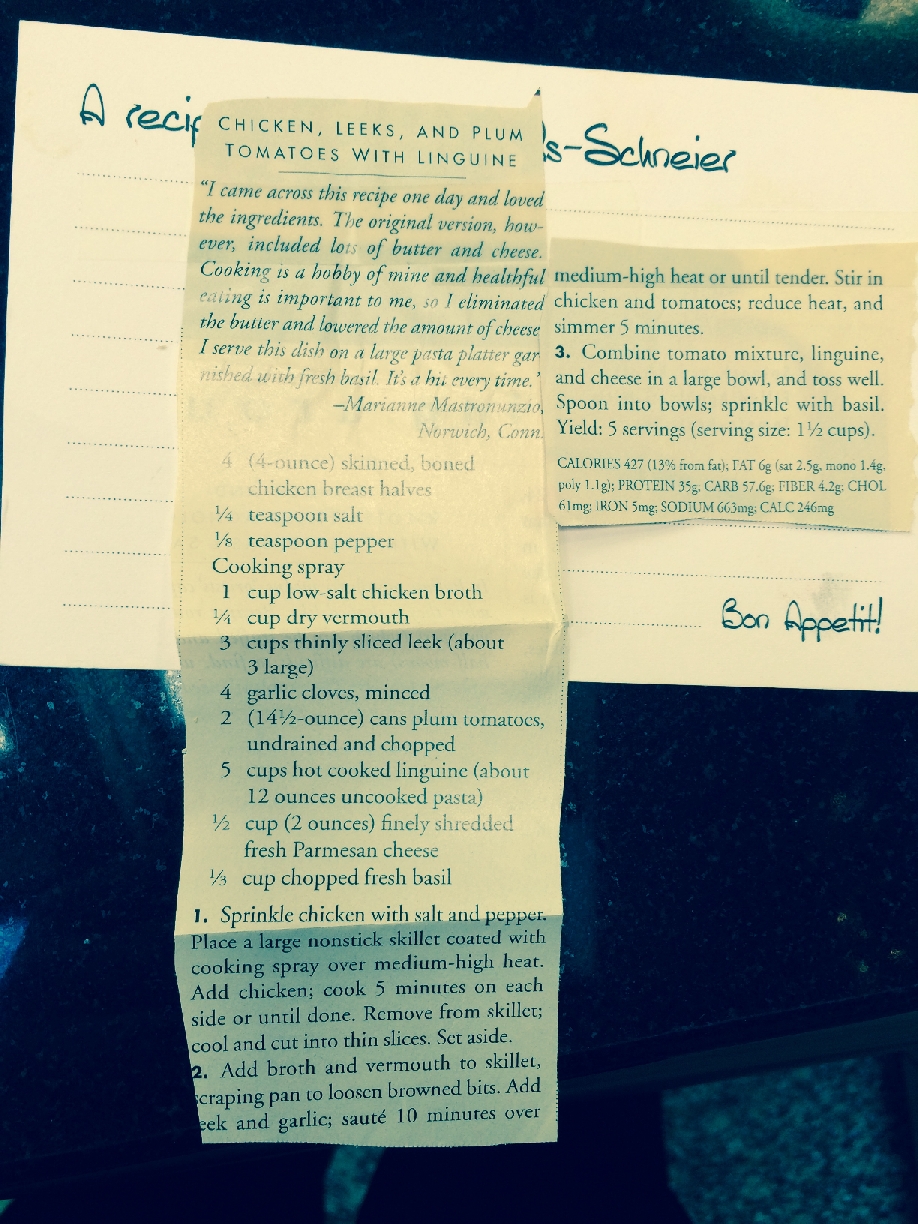 A recip
s-Schneier
CHICKEN, LEEKS, AND PLUM
TOMATOES WITH LINGUINE
"I came across this recipe one day and loved
the ingredients. The original version, how-
ever, included lots of butter and cheese.
Cooking is a hobby of mine and healthful
eating is important to me, so I eliminated
the butter and lowered the amount of cheese
I serve this dish on a large pasta platter gar
nished with fresh basil. It's a hit every time.'
–Marianne Mastronunzio,
Norwich, Conn.
4 (4-ounce) skinned, boned
chicken breast halves
¼ teaspoon salt
⅛ teaspoon pepper
Cooking spray
1 cup low-salt chicken broth
¼ cup dry vermouth
3 cups thinly sliced leek (about
3 large)
4 garlic cloves, minced
2 (14½-ounce) cans plum tomatoes,
undrained and chopped
5 cups hot cooked linguine (about
12 ounces uncooked pasta)
½ cup (2 ounces) finely shredded
fresh Parmesan cheese
⅓ cup chopped fresh basil
1. Sprinkle chicken with salt and pepper.
Place a large nonstick skillet coated with
cooking spray over medium-high heat.
Add chicken; cook 5 minutes on each
side or until done. Remove from skillet;
cool and cut into thin slices. Set aside.
2. Add broth and vermouth to skillet,
scraping pan to loosen browned bits. Add
eek and garlic; sauté 10 minutes over
medium-high heat or until tender. Stir in
chicken and tomatoes; reduce heat, and
simmer 5 minutes.
3. Combine tomato mixture, linguine,
and cheese in a large bowl, and toss well.
Spoon into bowls; sprinkle with basil.
Yield: 5 servings (serving size: 1½ cups).
CALORIES 427 (13% from fat); FAT 6g (sat 2.5g, mono 1.4g,
poly 1.1g); PROTEIN 35g, CARB 57.6g; FIBER 4.2g; CHOL
61mg; IRON 5mg; SODIUM 663mg; CALC 246mg
Bon Appetit!